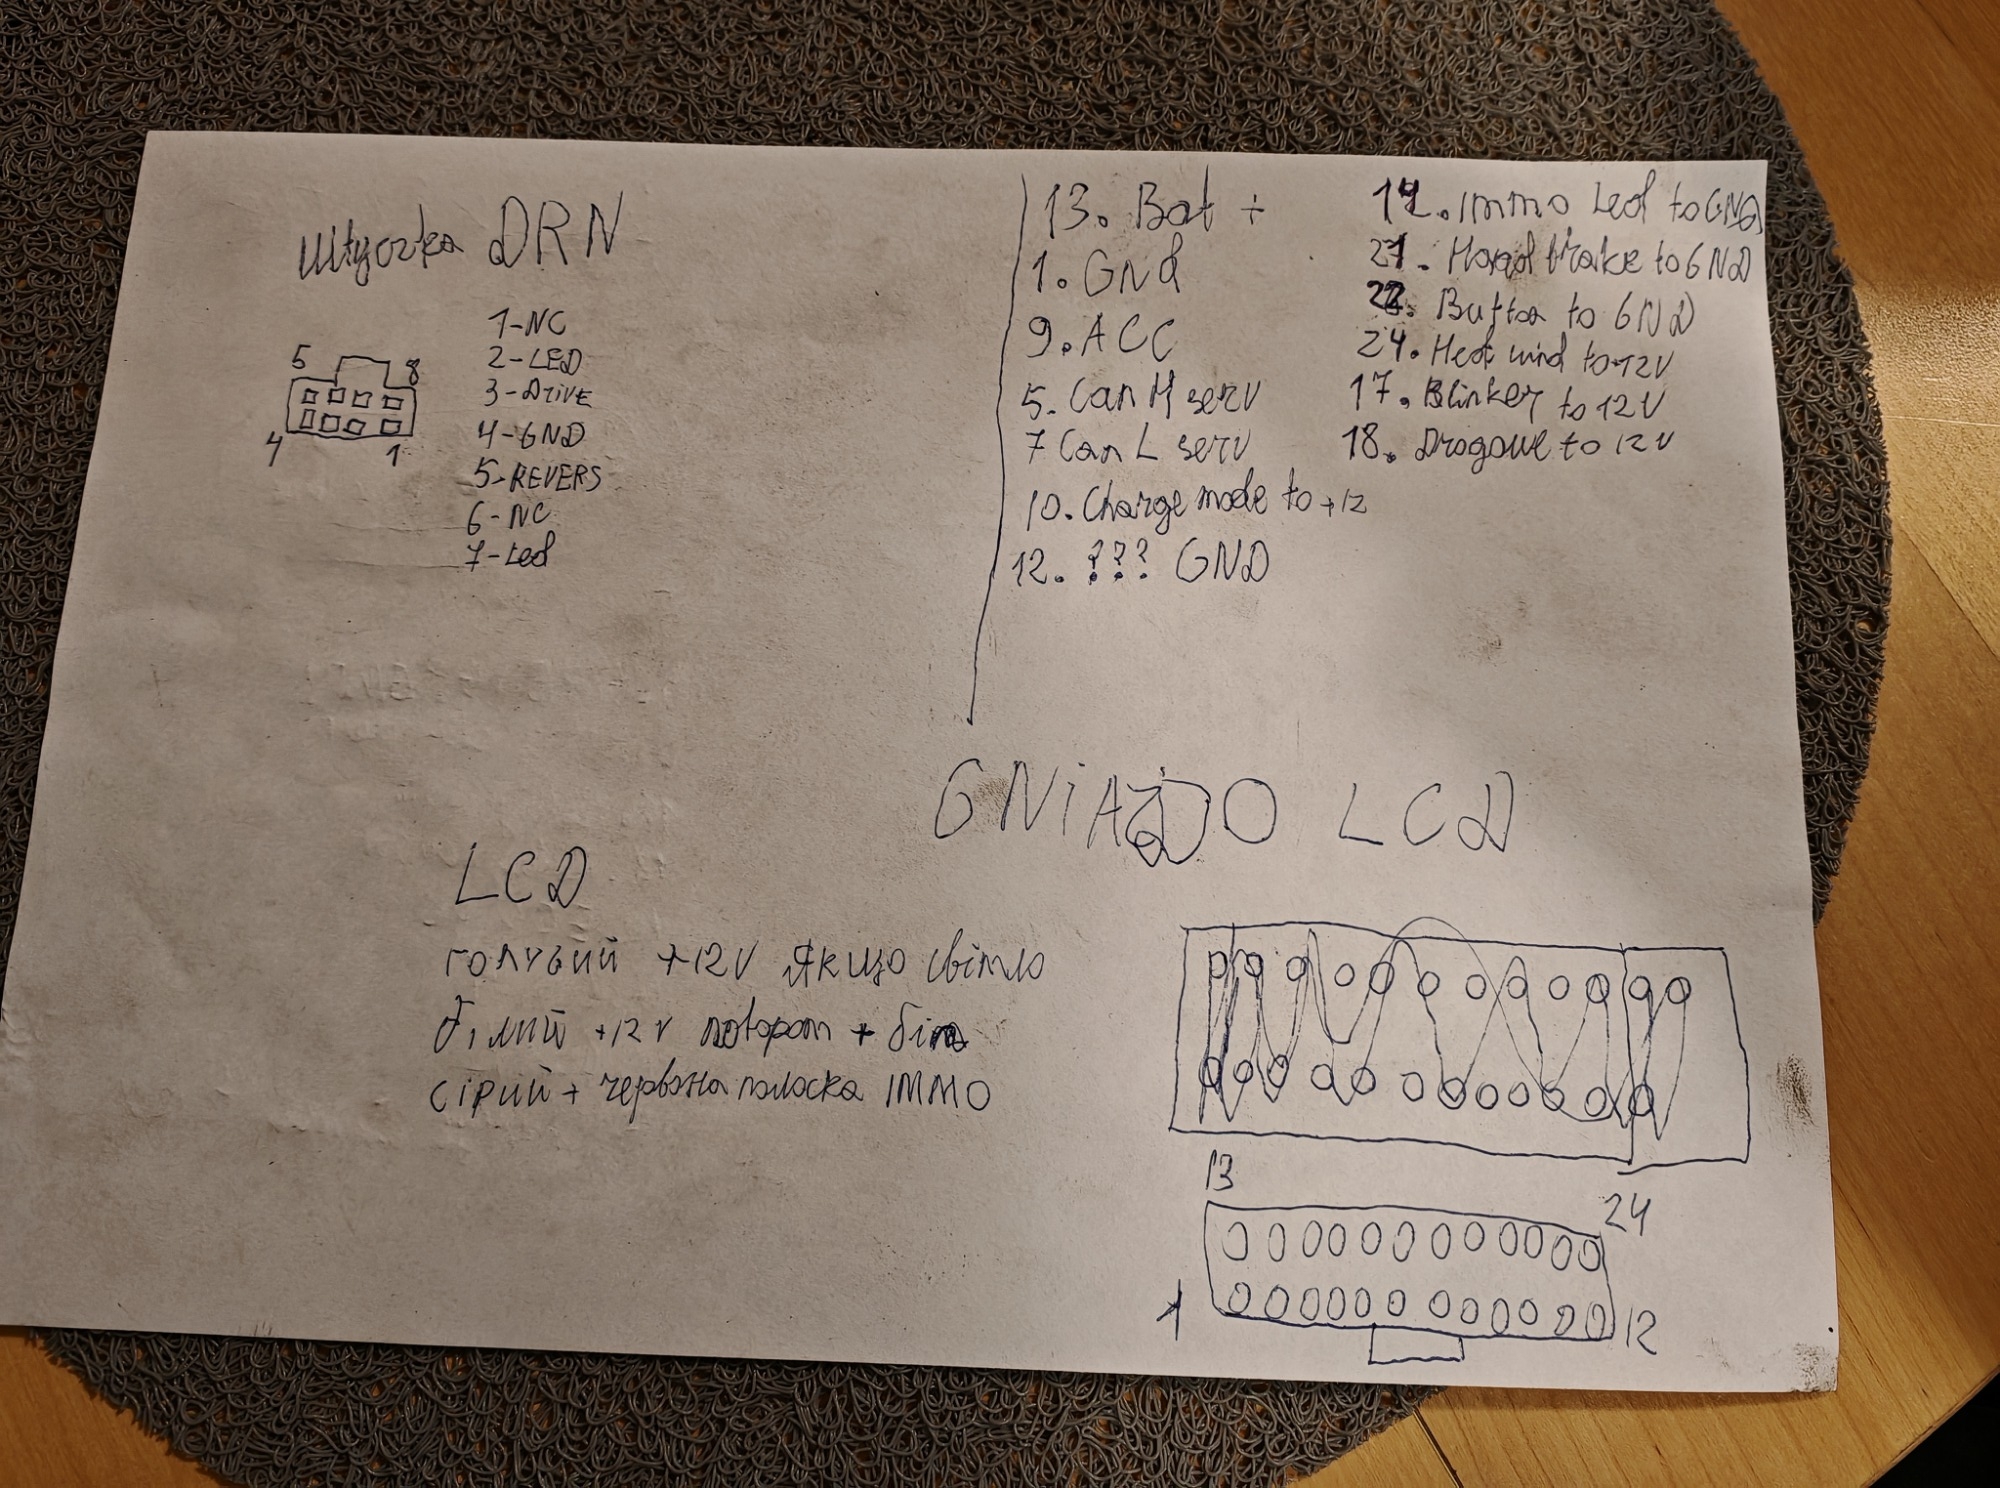 Штучка DRN
1-NC
2-LED
3-DRIVE
4-GND
5-REVERS
6-NC
7-Led
5
8
4
1
13. Bat +
1. GNd
9. ACC
5. Can H serv
7 Can L serv
10. Charge mode to +12
12. ??? GND
14. Immo Led to GND
21. Hand brake to GND
22. Button to GND
24. Heat wind to +12V
17. Blinker to 12V
18. Drogowe to 12V
GNIAZDO LCD
LCD
голубий +12V якщо світло
білий +12V поворот +
сірий + червона полоска IMMO
13
24
1
12